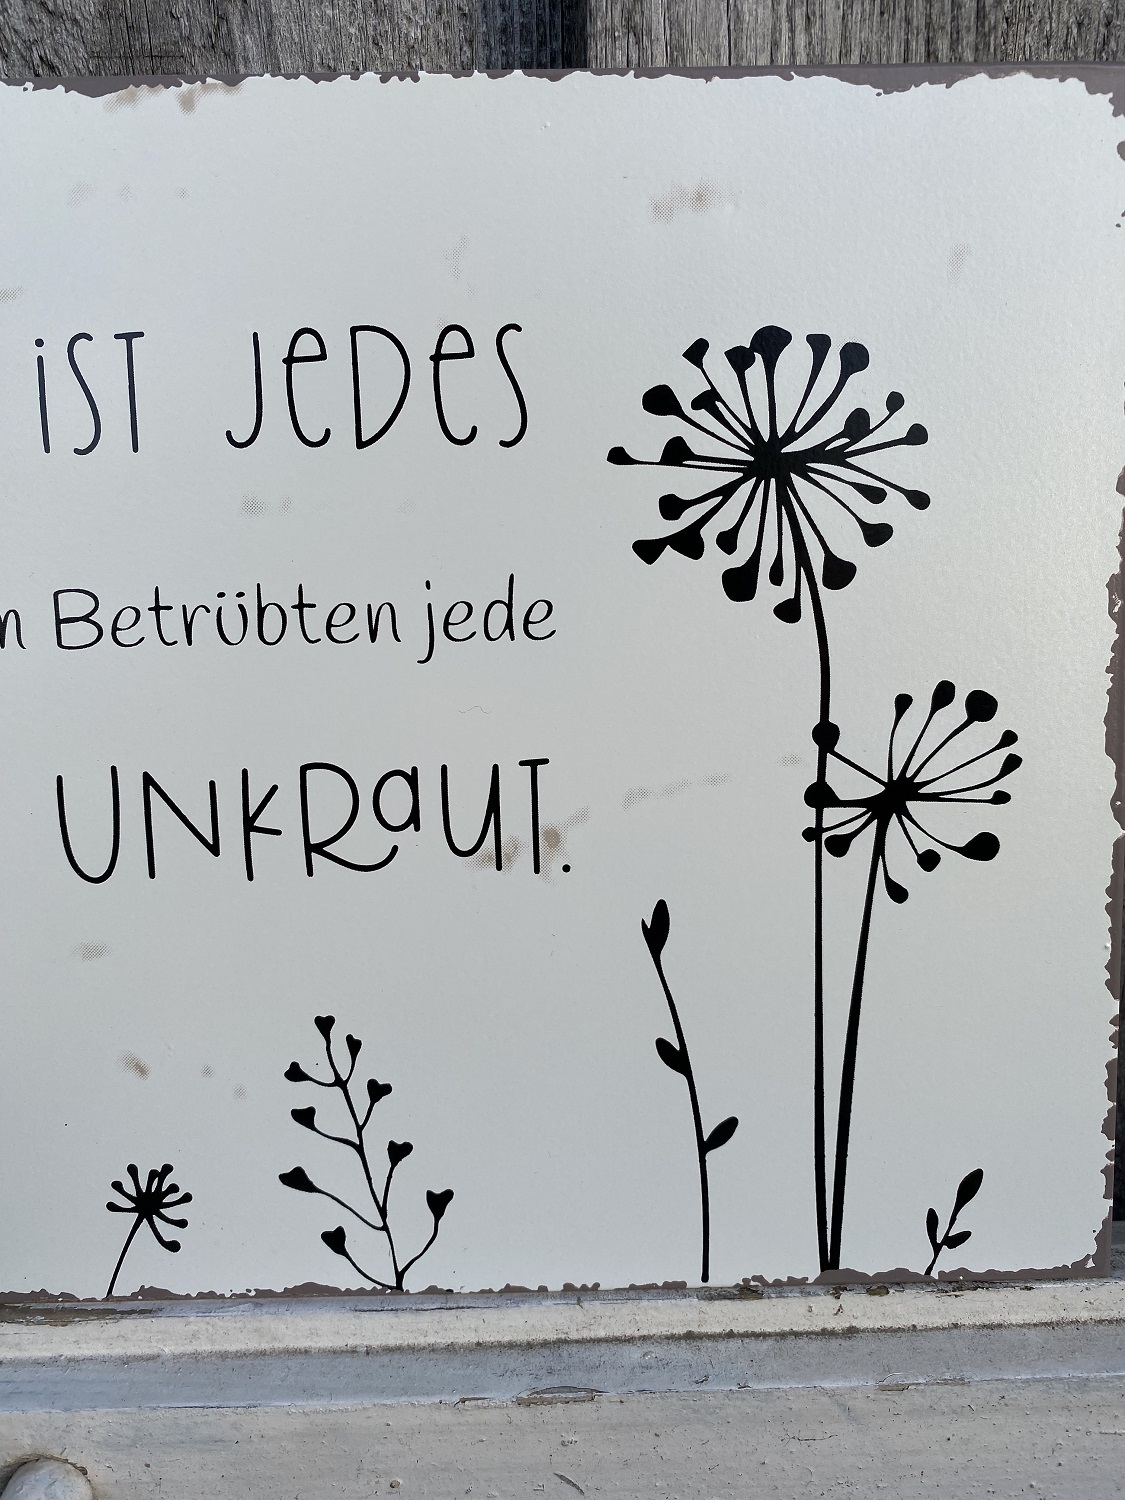 iST JeDeS
n Betrübten jede
UNKRaUT.